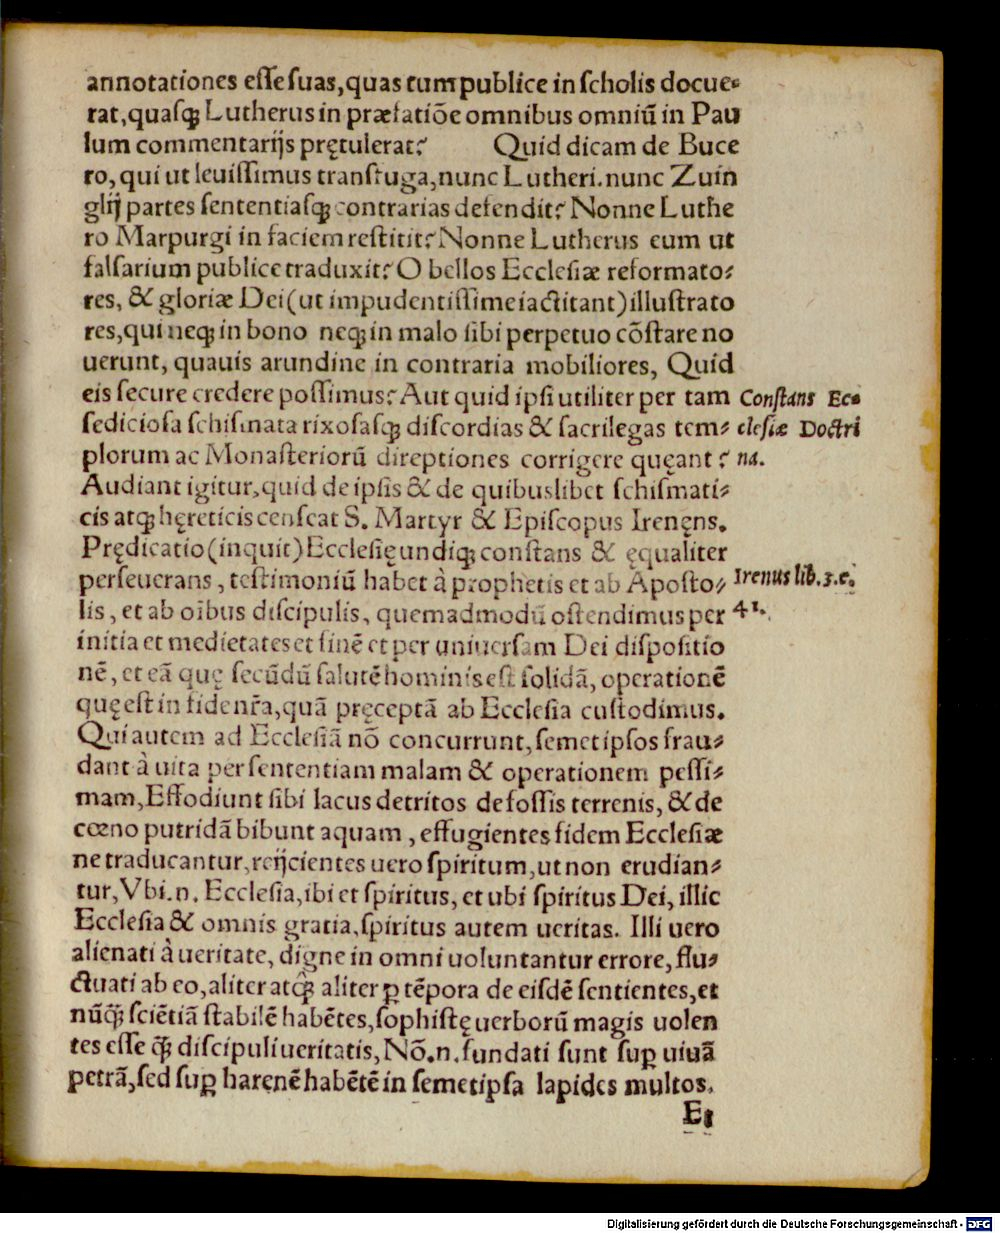 annotationes eſſe ſuas, quas tum publice in ſcholis docue⸗
rat, quaſqꝫ Lutherus in præfatiōe omnibus omniū in Pau
lum commentarijs prętulerat? Quid dicam de Buce
ro, qui ut leuiſſimus transfuga, nunc Lutheri. nunc Zuin
glij partes ſententiaſqꝫ contrarias defendit? Nonne Luthe
ro Marpurgi in faciem reſtitit? Nonne Lutherus eum ut
falſarium publice traduxit? O bellos Eccleſiæ reformato⸗
res, & gloriæ Dei (ut impudentiſſime iactitant) illuſtrato
res, qui neqꝫ in bono neqꝫ in malo ſibi perpetuo cōſtare no
uerunt, quauis arundine in contraria mobiliores, Quid
eis ſecure credere poſſimus? Aut quid ipſi utiliter per tam
Conſtans Ec⸗
ſedicioſa ſchiſmata rixoſaſqꝫ diſcordias & ſacrilegas tem⸗
cleſiæ Doctri
plorum ac Monaſteriorū direptiones corrigere queant?
na.
Audiant igitur, quid de ipſis & de quibuslibet ſchiſmati⸗
cis atqꝫ hęreticis cenſeat S. Martyr & Epiſcopus Irenęns.
Prędicatio (inquit) Eccleſię undiqꝫ conſtans & ęqualiter
perſeuerans, teſtimoniū habet à prophetis et ab Apoſto⸗
Irenus lib. 3. c.
lis, et ab oībus diſcipulis, quemadmodū oſtendimus per
41.
initia et medietates et finē et per uniuerſam Dei diſpoſitio
nē, et eā quę ſecūdū ſalutē hominis eſt ſolidā, operationē
quę eſt in fide nr̄a, quā pręceptā ab Eccleſia cuſtodimus.
Qui autem ad Eccleſiā nō concurrunt, ſemetipſos frau⸗
dant à uita per ſententiam malam & operationem peſſi⸗
mam, Effodiunt ſibi lacus detritos de foſſis terrenis, & de
cœno putridā bibunt aquam, effugientes fidem Eccleſiæ
ne traducantur, reijcientes uero ſpiritum, ut non erudian⸗
tur, Vbi. n. Eccleſia, ibi et ſpiritus, et ubi ſpiritus Dei, illic
Eccleſia & omnis gratia, ſpiritus autem ueritas. Illi uero
alienati à ueritate, digne in omni uoluntantur errore, flu⸗
ctuati ab eo, aliter atqꝫ̄ aliter ꝑ tēpora de eiſdē ſentientes, et
nūqꝫ̄ ſciētiā ſtabilē habētes, ſophiſtę uerborū magis uolen
tes eſſe qꝫ̄ diſcipuli ueritatis, Nō. n. fundati ſunt ſuꝑ uiuā
petrā, ſed ſuꝑ harenē habētē in ſemetipſa lapides multos.
Et
Digitalisierung gefördert durch die Deutsche Forschungsgemeinschaft - DFG